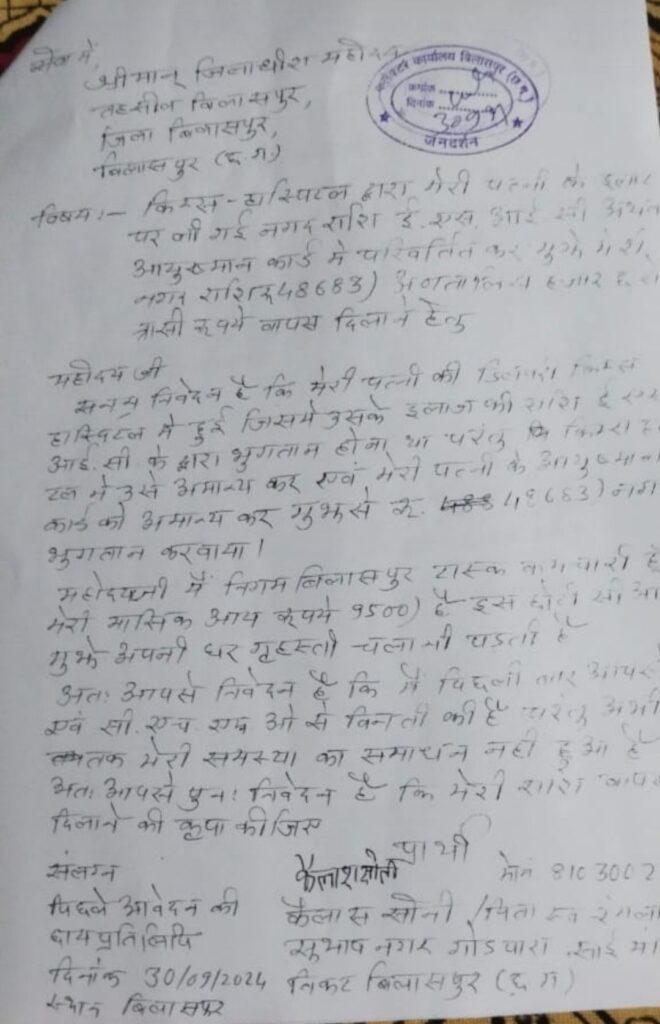 सेवा में,
श्रीमान् जिलाधीश महोदय
तहसील बिलासपुर,
जिला बिलासपुर,
बिलासपुर (छ.ग)
कलेक्टर कार्यालय बिलासपुर (छ.ग.)
क्रमांक
दिनांक
जनदर्शन
विषय :- किम्स-हास्पिटल द्वारा मेरी पत्नी के इलाज
पर ली गई नगद राशि ई. एस. आई सी अथवा
आयुष्मान कार्ड में परिवर्तित कर मुझे मेरी
नगद राशि रू 48683) अड़तालिस हजार छ:
त्रासी रूपये वापस दिलाने हेतु
महोदय जी
सनम्र निवेदन है कि मेरी पत्नी की डिलवरी किम्स
हास्पिटल में हुई जिसमें उसके इलाज की राशि ई एस
आई. सी. के द्वारा भुगतान होना था परंतु किम्स
टल में उसे अमान्य कर एवं मेरी पत्नी के आयुष्मान
कार्ड को अमान्य कर मुझसे रू. 48683) नग
भुगतान करवाया।
महोदयजी मैं निगम बिलासपुर टास्क कर्मचारी हूँ
मेरी मासिक आय रूपये 9500) है इस छोटी सी आ
मुझे अपनी घर गृहस्ती चलानी पड़ती है
अतः आपसे निवेदन है कि मैं पिछली बार आपसे
एवं सी. एच एम ओ से विनती की है परंतु अभी
तक मेरी समस्या का समाधन नहीं हुआ है
अतः आपसे पुनः निवेदन है कि मेरी राशि वापस
दिलाने की कृपा कीजिए
प्रार्थी
संलग्न कैलाश सोनी मो.नं 8103002
पिछले आवेदन की कैलास सोनी / पिता स्व
छायाप्रतिलिपि सुभाष नगर गोडपारा साई मं
दिनांक 30/09/2024 निकट बिलासपुर (छ ग)
स्थान बिलासपुर